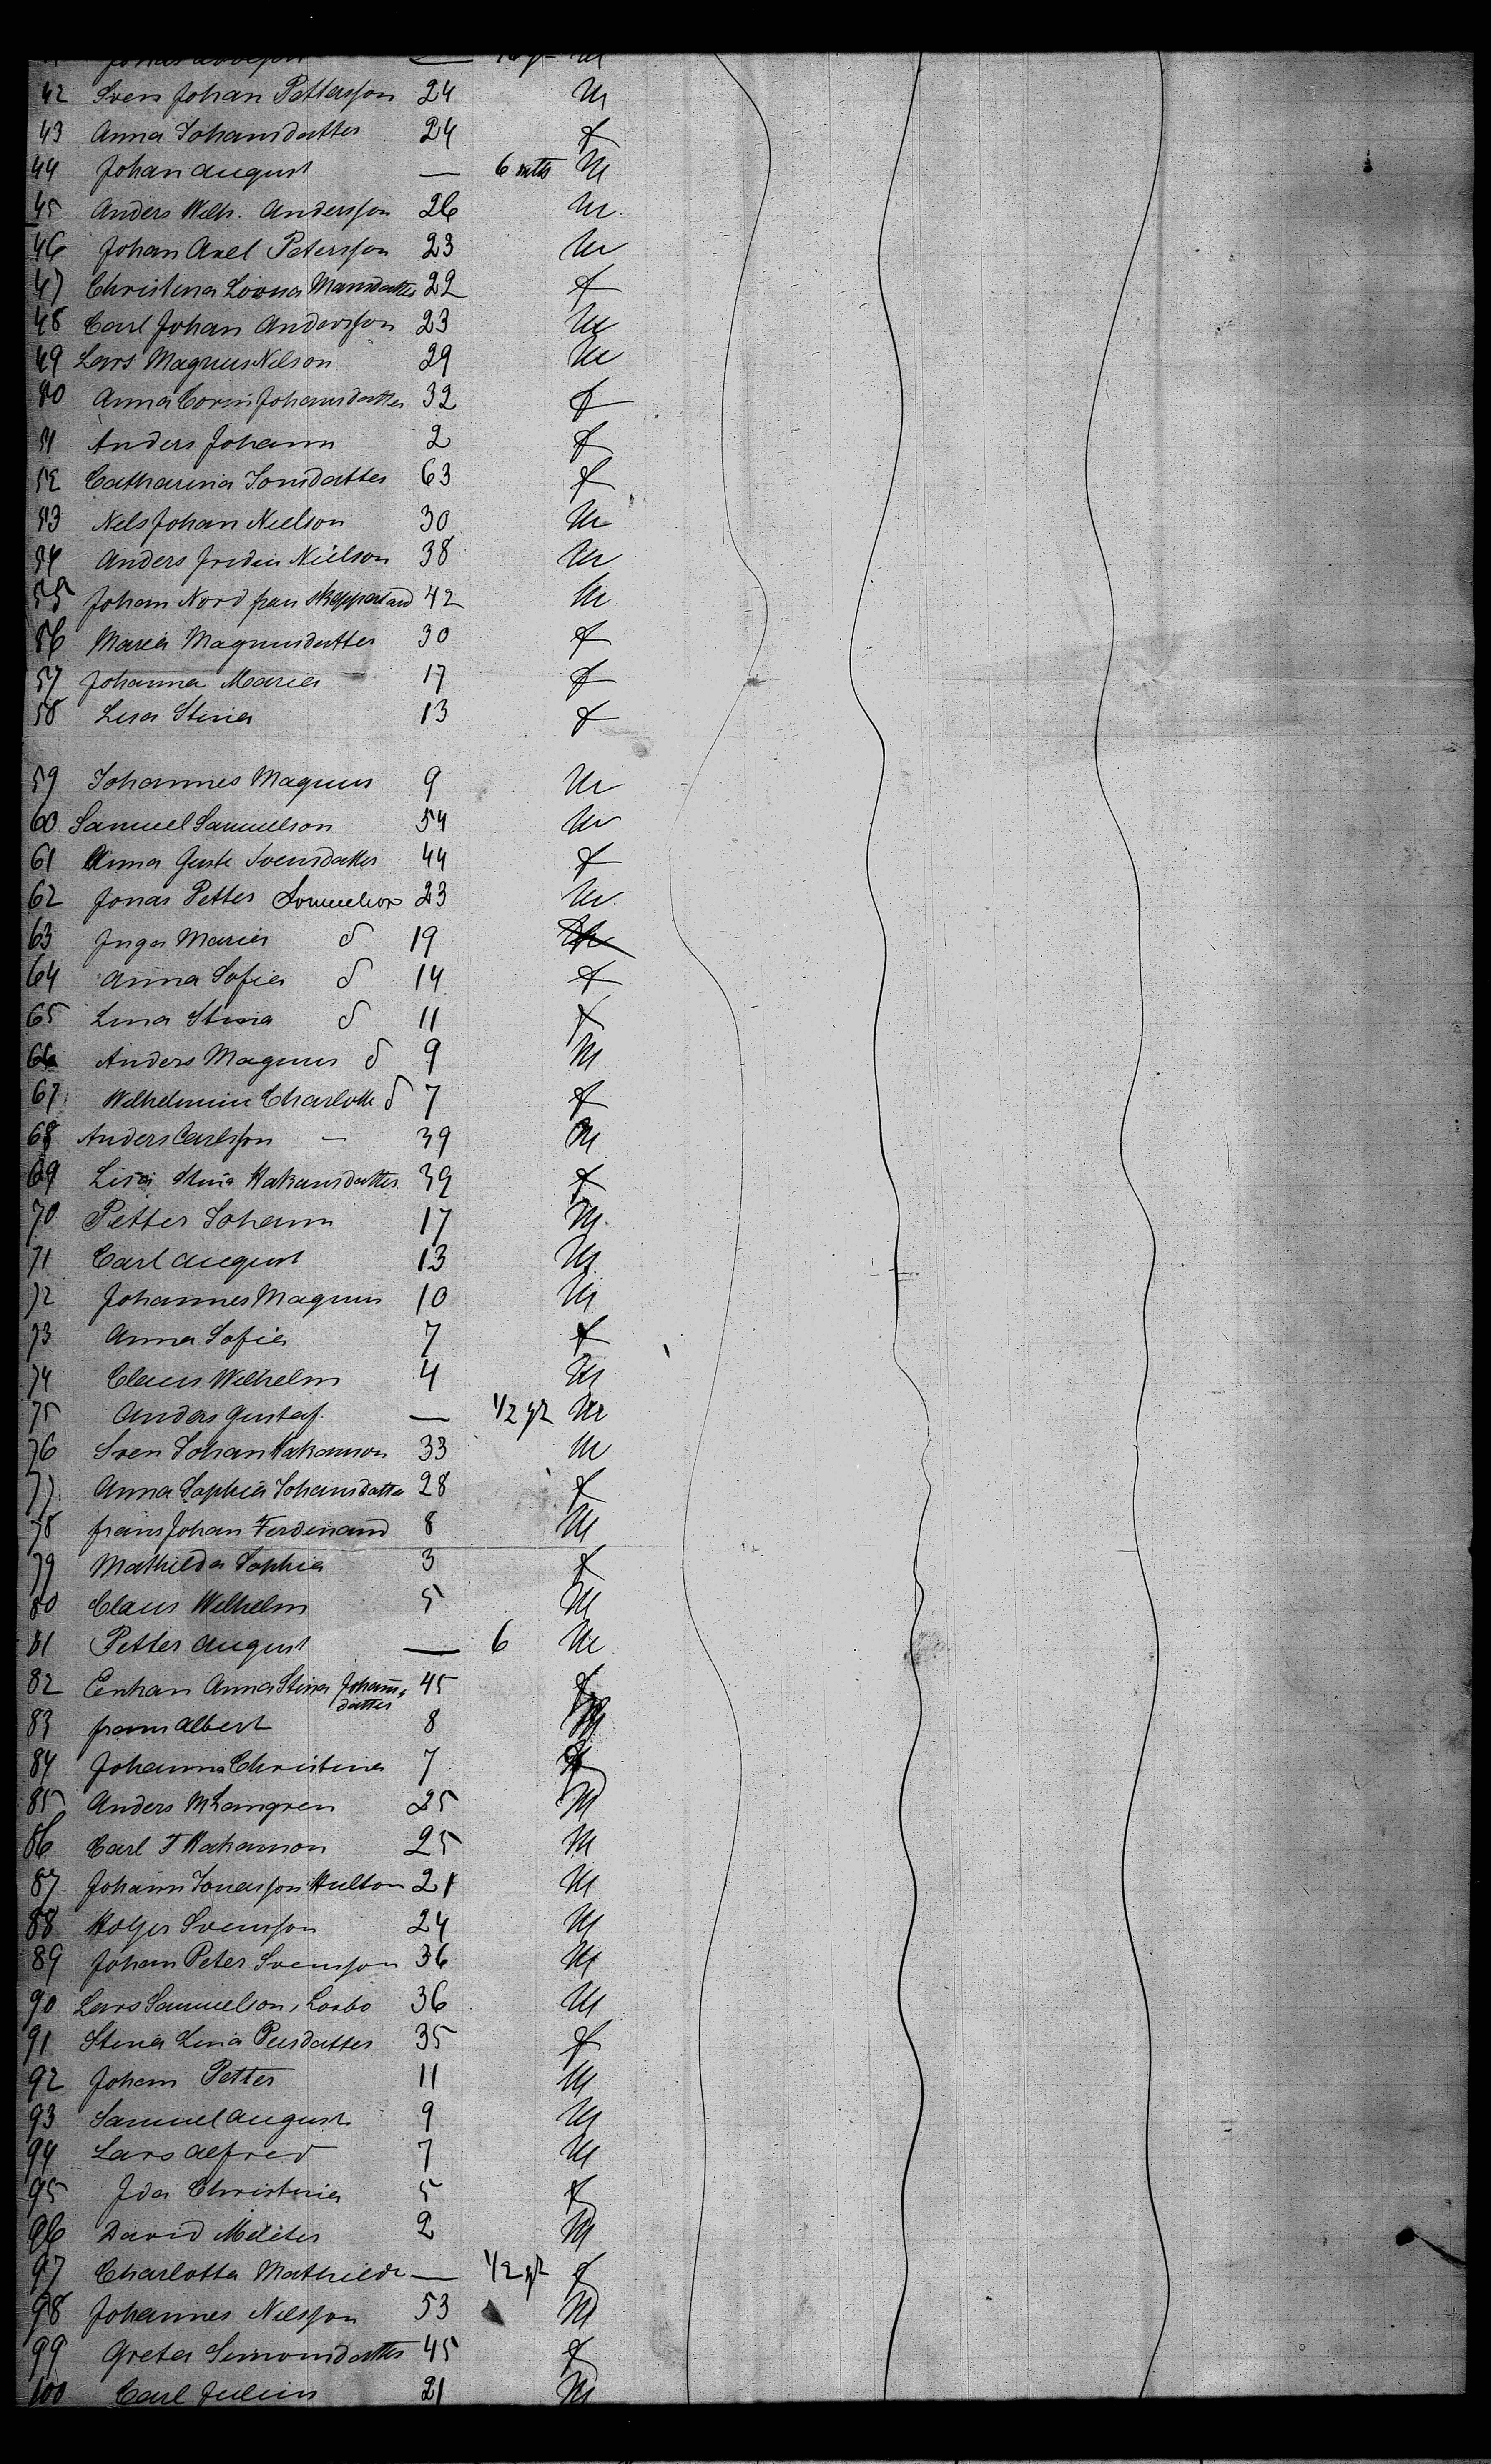 42 Sven Johan Pettersson 24 M
43 Anna Johansdatter 24 f
44 Johan August — 6 mths M
45 Anders Wilh. Andersson 26 M
46 Johan Axel Petersson 23 M
47 Christina Lovisa Mansdatter 22 f
48 Carl Johan Andersson 23 M
49 Lars Magnus Nilson 29 M
50 Anna Johansdatter 32 f
51 Anders Johann 2 f
52 Catharina Jonsdatter 63 f
53 Nils Johan Nielson 30 M
54 Anders Nielson 38 M
55 Johan Nord 42 M
56 Maria Magnusdatter 30 f
57 Johanna Maria 17 f
58 Lisa Stina 13 f
59 Johannes Magnus 9 M
60 Samuel Samuelson 54 M
61 Anna Svensdatter 44 f
62 Jonas Petter Samuelson 23 M
63 Inga Maria d 19
64 Anna Sofia d 14 f
65 Lina Stina d 11 f
66 Anders Magnus d 9 M
67 Wilhelmine Charlotte d 7 f
68 Anders Carlsson — 39 M
69 Lisa Stina Hakansdatter 39 f
70 Petter Johann 17 M
71 Carl August 13 M
72 Johannes Magnus 10 M
73 Anna Sofia 7 f
74 Claus Wilhelm 4 M
75 Anders Gustaf — 1/2 yr M
76 Sven Johan Hakanson 33 M
77 Anna Sophia Johansdatter 28 f
78 frans Johan Ferdinand 8 M
79 Mathilda Sophia 3 f
80 Claus Wilhelm 5 M
81 Petter August — 6 M
82 Enkan Anna Stina Johans datter 45 f
83 frans Albert 8 M
84 Johanna Christina 7 f
85 Anders M Langren 25 M
86 Carl Hakanson 25 M
87 Johann Jonasson Hulton 21 M
88 Holger Svensson 24 M
89 Johan Peter Svensson 36 M
90 Lars Samuelson, 36 M
91 Stina Lina 35 f
92 Johan Petter 11 M
93 Samuel August 9 M
94 Lars Alfred 7 M
95 Ida Christina 5 f
96 David 2 M
97 Charlotta Mathilde — 1/2 yr f
98 Johannes Nilsson 53 M
99 Greta Simonsdatter 45 f
100 Carl Julius 21 M